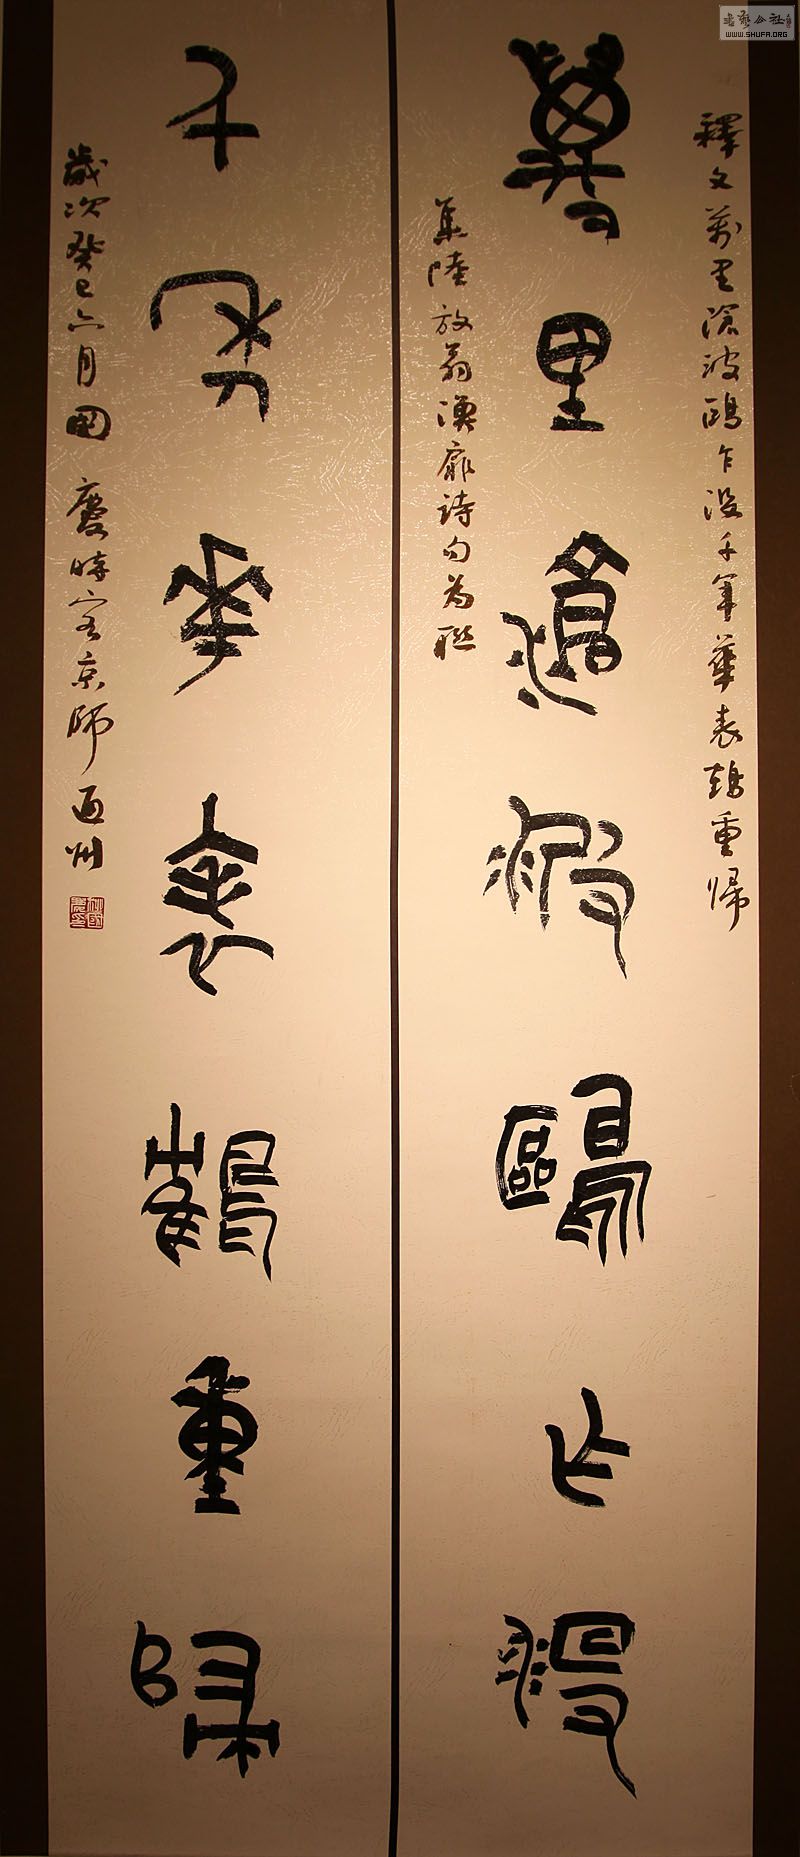 釋文萬里滄波鷗乍沒千年華表鶴重歸
萬里滄波鷗乍沒
集陸放翁漁扉詩句為聯
千年華表鶴重歸
歲次癸巳六月國慶時客京師通州
WWW.SHUFA.ORG